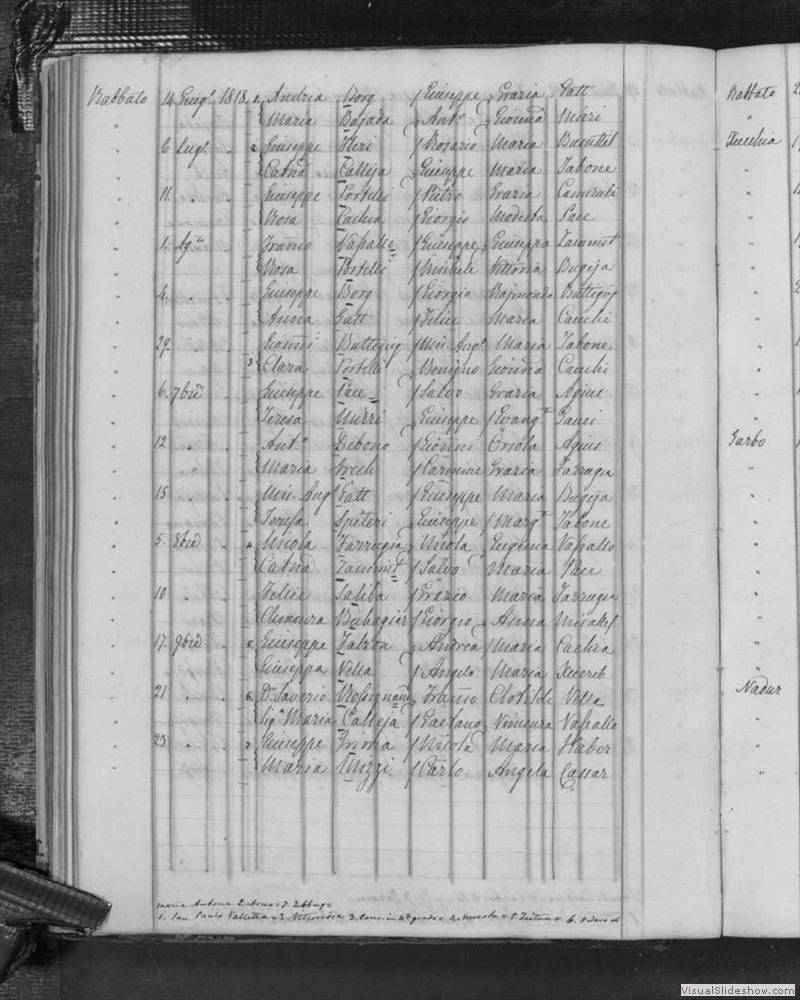 Rabbato 14 Giug.o 1818. 1. Andrea Borg / Giuseppe, Grazia Gatt
Maria Bajada, Ant.o, Gionna
6 Lugl. 2 Giuseppe / Rosario Maria Busuttil
Catna Calleja, Giuseppe Maria Tabone
11. Giuseppe Portelli / Pietro Grazia Camenzuli
Rosa Cachia / Giorgio Modesta Pace
1. Ag. Vassallo / Giuseppe, Giuseppa Zammit
Rosa Portelli / Michele Vittoria Bugeja
4. Giuseppe Borg / Giorgio Rajmonda Buttigieg
Anna Gatt / Felice Maria Cauchi
29. Gionni Buttigieg / Min. Angl Maria Tabone
3 Clara Portelli, Benigno Gionna Cauchi
6. 7bre Giuseppe Pace / Salvo Grazia Agius
Teresa Muzzi, Giuseppe / Evang.
12 Ant.o Debono / Gionni Orsola Agius
Maria Grech / Carmine Grazia Farrugia
15 Min. Angl Gatt / Giuseppe Maria Bugeja
Teresa Spiteri, Giuseppe / Marg.t Tabone
5. 8bre 4 Nicola Farrugia, Nicola Eugenia Vassallo
Catna Zammit / Salvo Maria Pace
10 Felice Saliba / Grazio Maria Farrugia
Buhagiar / Giorgio, Anna Micallef
17. 9bre 5 Giuseppe Falzon, Andrea / Maria Cachia
Giuseppa Vella / Angelo Maria Xuereb
21 6 Dr. Saverio Clotilde Vella
Sig.a Maria Calleja / Gaetano, Vincenza Vassallo
23 7 Giuseppe Grima / Nicola Maria Haber
Maria Muzzi / Carlo Angela Cassar
maria Antonia Debono = 7. Zebbug =
1. San Paolo Valletta = 2. Vittoriosa 3. Cons. in 4to grado = 4. = 5. Zeitun = 6.
Rabbato
Xucchia
Garbo
Nadur
VisualSlideshow.com